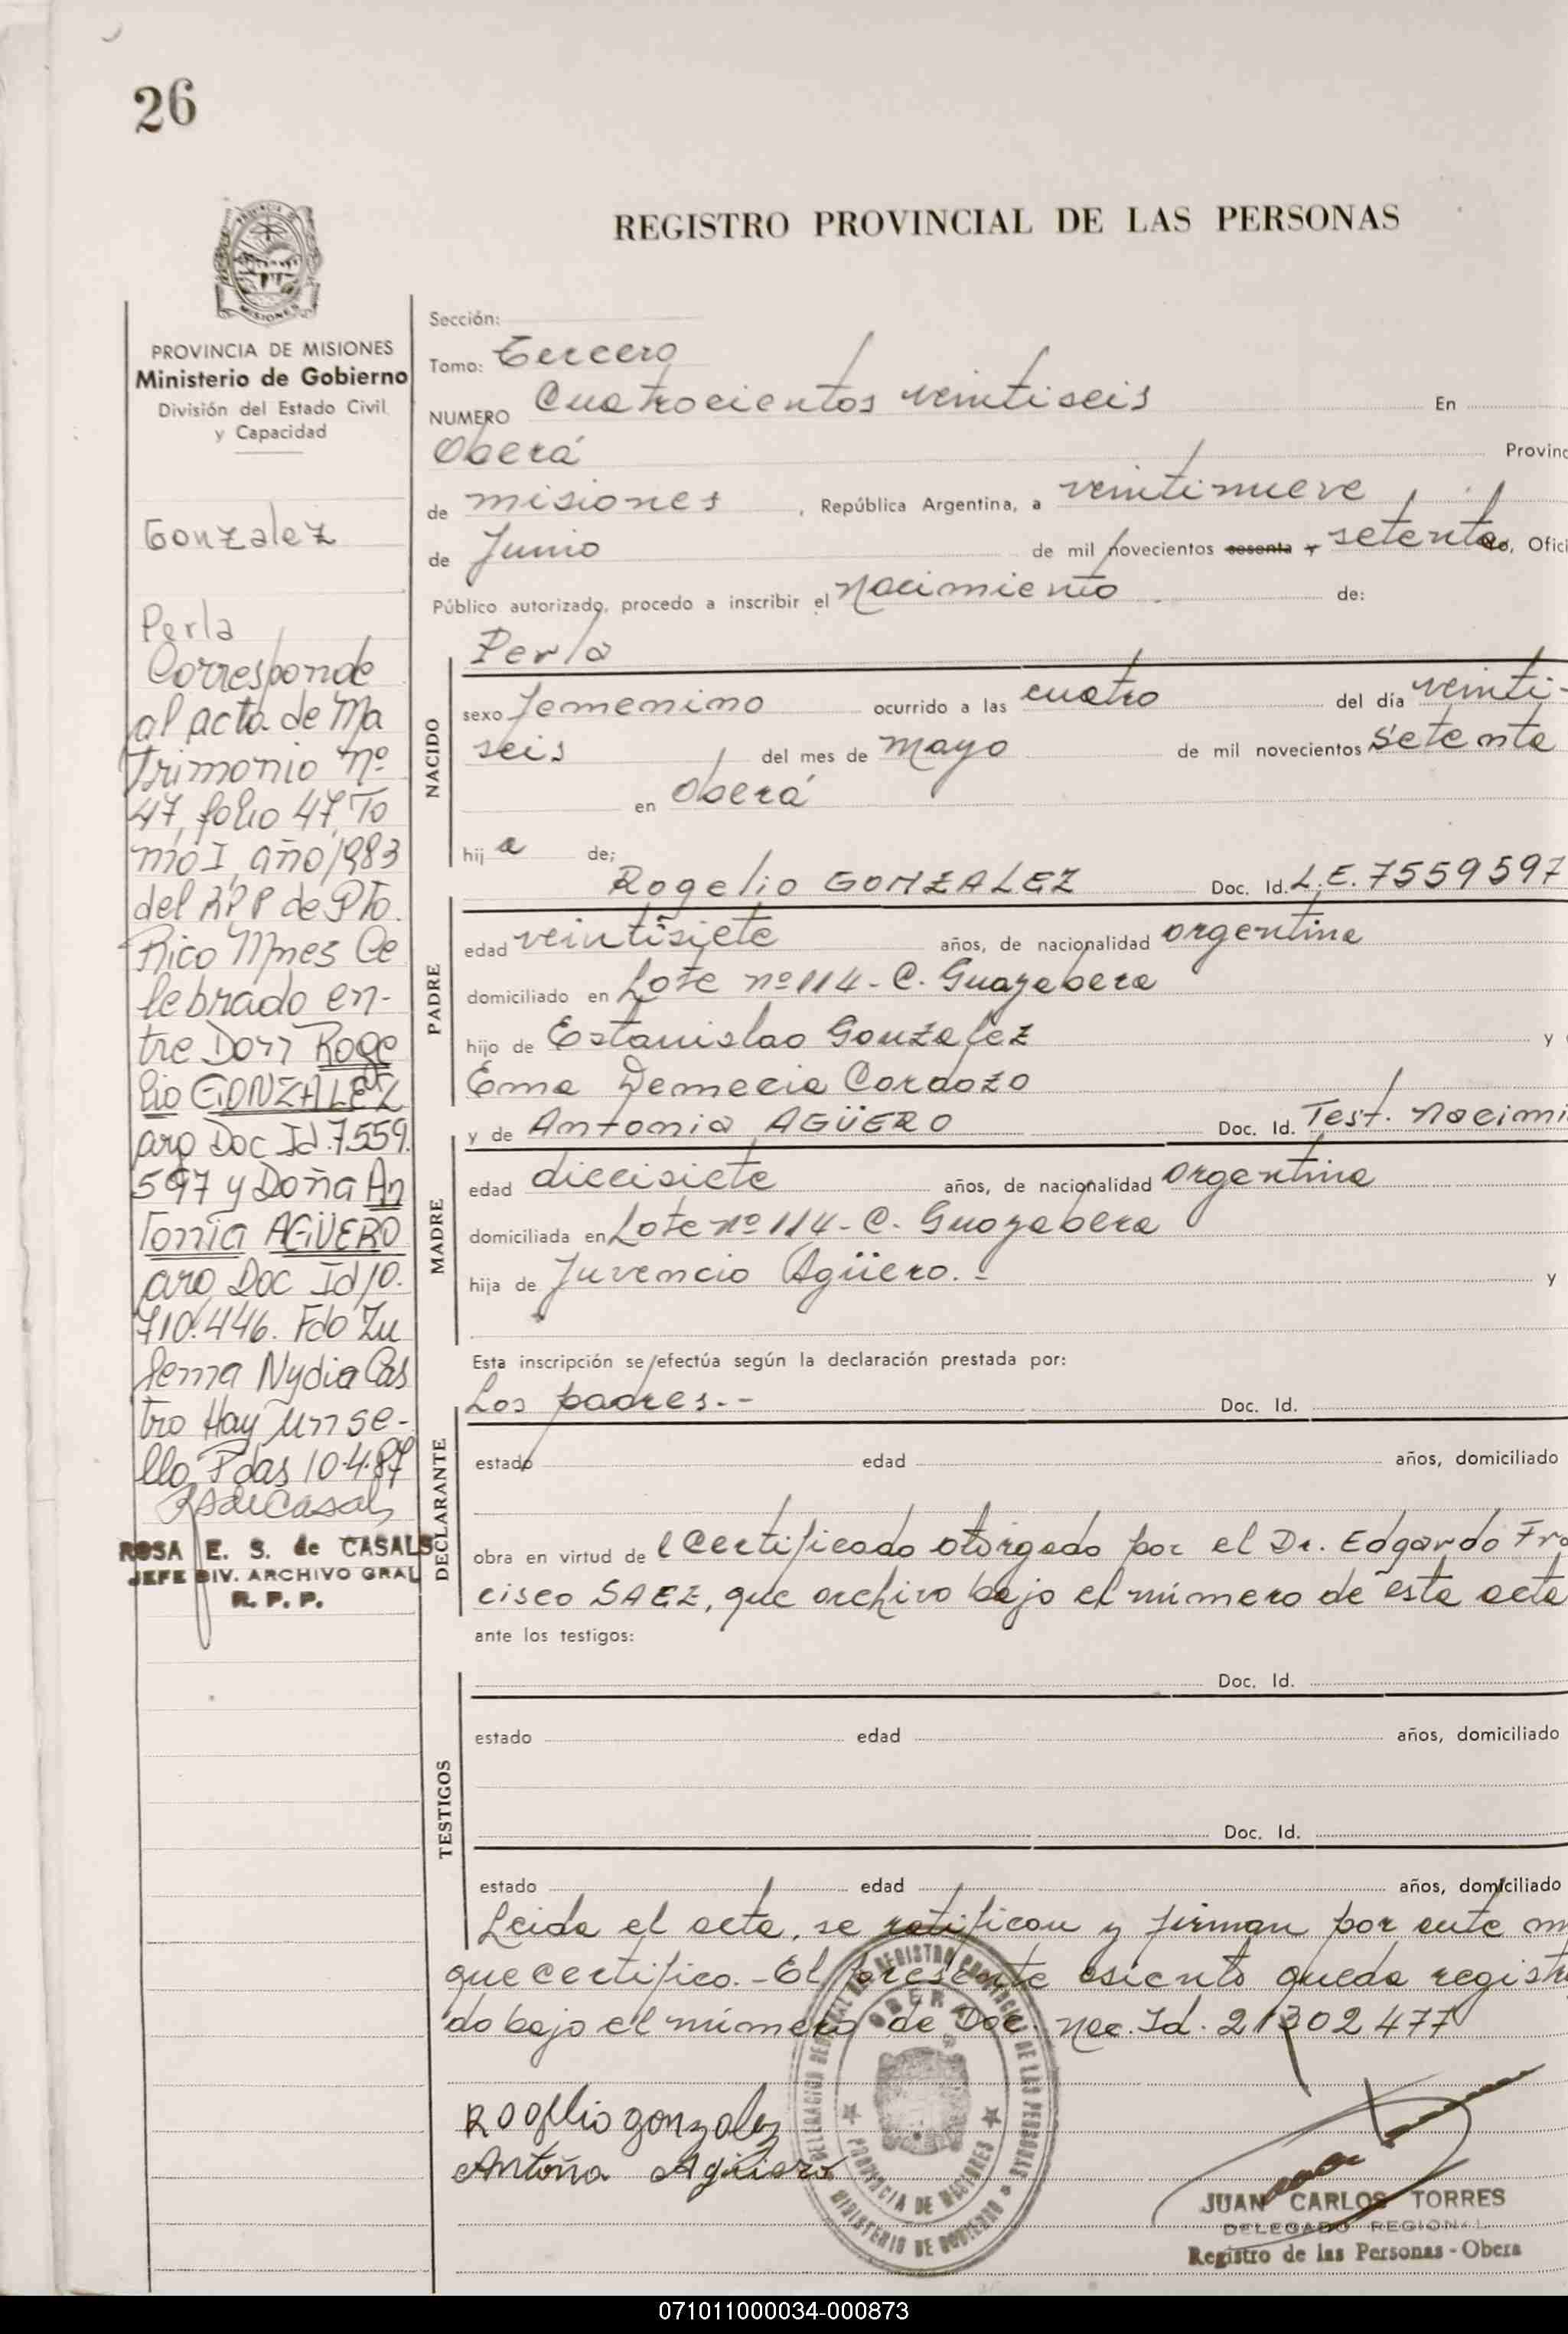 26
REGISTRO PROVINCIAL DE LAS PERSONAS
MISIONES
PROVINCIA DE MISIONES
Ministerio de Gobierno
División del Estado Civil
y Capacidad
Gonzalez
Perla
Corresponde
al acta de Ma
trimonio nº
47, folio 47, To
mo I, año 1983
del RPP de Pto.
Rico Mnes Ce
lebrado en-
tre Don Roge
lio GONZALEZ
arg Doc Id 7.559.
597 y Doña An
tonia AGÜERO
arg Doc Id 10.
710.446. Fdo Zu
lema Nydia Cas
tro Hay un se-
llo Pdas 10-4-87
ROSA E. S. de CASALS
JEFE DIV. ARCHIVO GRAL
R. P. P.
Sección:
Tomo: Tercero
NUMERO Cuatrocientos veintiseis En
Oberá Provinc
de misiones, República Argentina, a veintinueve
de Junio de mil novecientos sesenta y setenta, Ofici
Público autorizado, procedo a inscribir el Nacimiento de:
Perla
NACIDO
sexo femenino ocurrido a las cuatro del día veinti-
seis del mes de mayo de mil novecientos setenta
en Oberá
hij a de;
Rogelio GONZALEZ Doc. Id. L.E. 7559597
PADRE
edad veintisiete años, de nacionalidad argentina
domiciliado en Lote nº 114 - C. Guayabera
hijo de Estanislao Gonzalez y
Ema Demecia Cardozo
y de Antonia AGÜERO Doc. Id. Test. Nacimi
MADRE
edad diecisiete años, de nacionalidad argentina
domiciliada en Lote nº 114 - C. Guayabera
hija de Juvencio Agüero.- y
Esta inscripción se efectúa según la declaración prestada por:
Los padres.- Doc. Id.
DECLARANTE
estado edad años, domiciliado
obra en virtud de l Certificado otorgado por el Dr. Edgardo Fra
cisco SAEZ, que archivo bajo el número de esta acta
ante los testigos:
TESTIGOS
Doc. Id.
estado edad años, domiciliado
Doc. Id.
estado edad años, domiciliado
Leida el acta, se ratifican y firman por ante m
que certifico.- El presente asiento queda regist
do bajo el número de Doc. Nac. Id. 21302477
Rogelio gonzalez
Antonia Agüero
DELEGACION REGISTRO PROVINCIAL DE LAS PERSONAS
OBERA
PROVINCIA DE MISIONES
MINISTERIO DE GOBIERNO
JUAN CARLOS TORRES
DELEGADO REGIONAL
Registro de las Personas - Obera
071011000034-000873